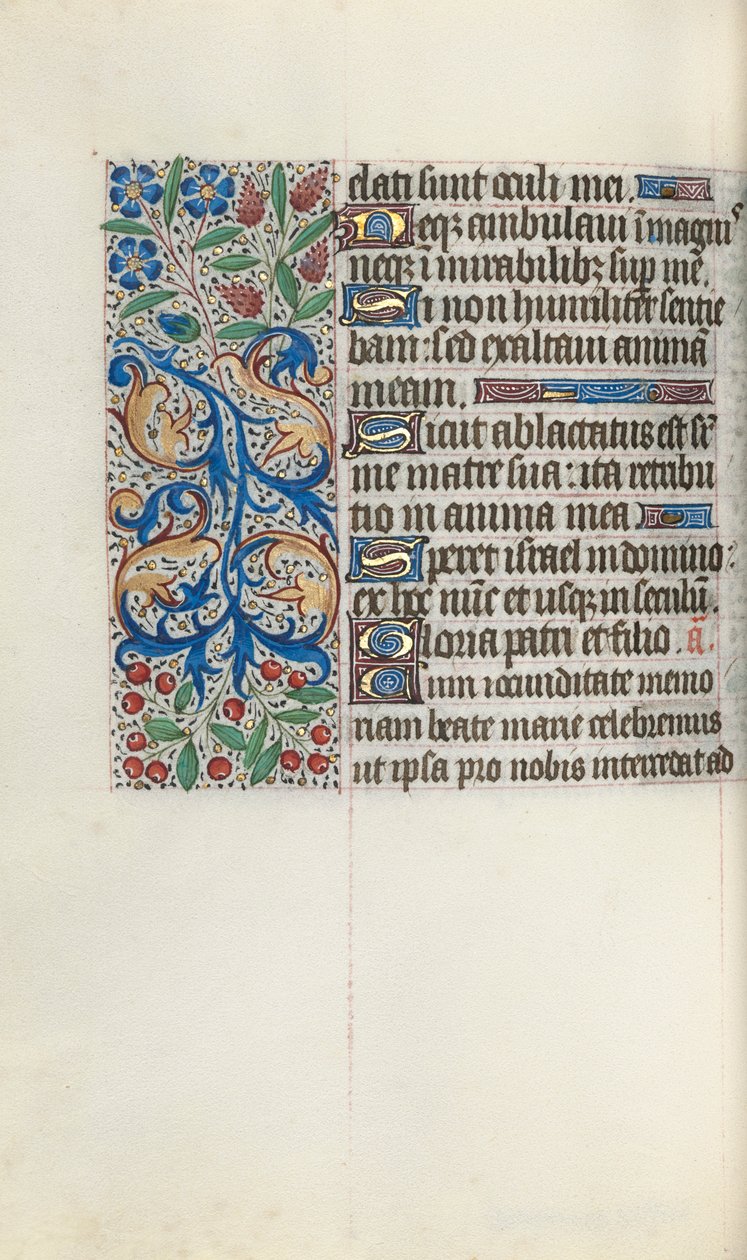 elati sunt oculi mei.
Neqꝫ ambulaui ī magnis
neqꝫ ī mirabilibꝫ sup me.
Si non humiliter sentie
bam: sed exaltaui animā
meam.
Sicut ablactatus est sr̄
me matre sua: ita retribu
tio in anima mea
Speret israel in domino:
ex hoc nūc et usqꝫ in seculū.
Gloria patri et filio. ā.
Cum iocunditate memo
riam beate marie celebremus
ut ipsa pro nobis intercedat ad